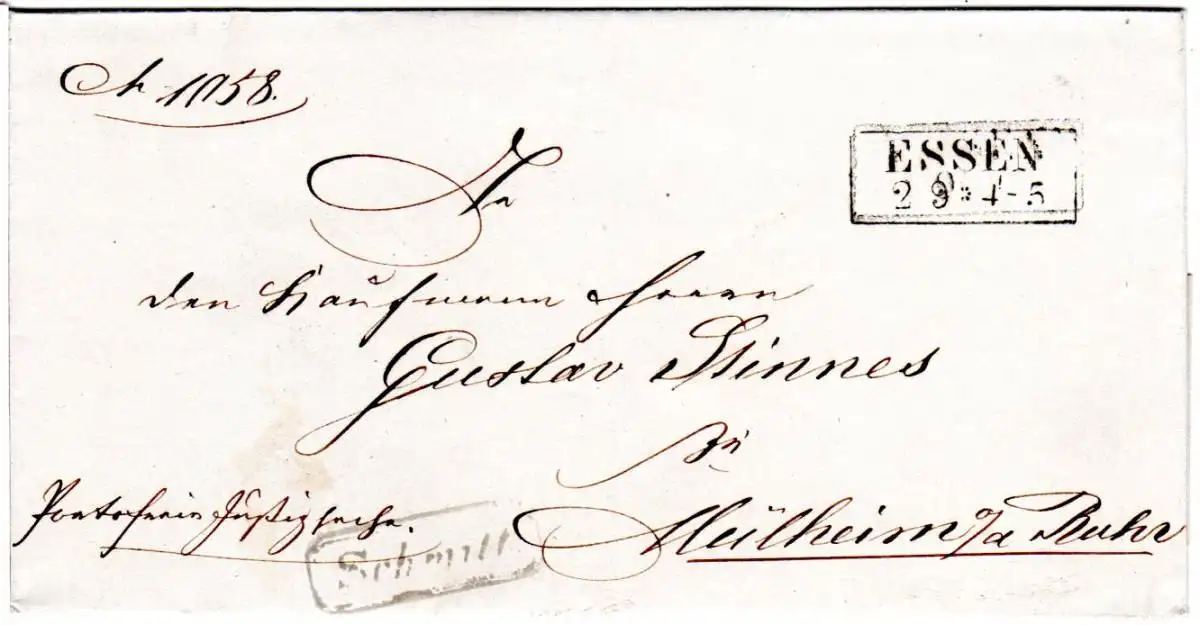 1058.
ESSEN
2 9 * 4-5
An
den Kaufmann Herrn
Gustav Stinnes
zu
Mülheim a/a Ruhr
Portofreie Justizsache.
Schmitt